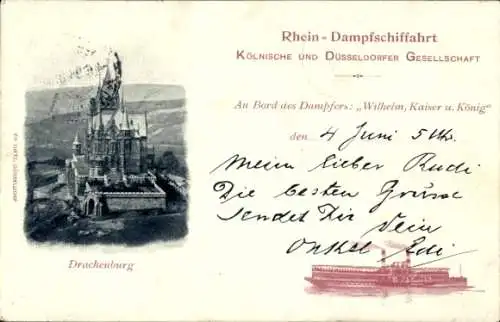 Rhein-Dampfschiffahrt
Kölnische und Düsseldorfer Gesellschaft
An Bord des Dampfers: „Wilhelm, Kaiser u. König“
den 4 Juni 5 Uh.
Mein lieber Rudi
Die besten Grüsse
sendet Dir Dein
Onkel Edi
Drachenburg